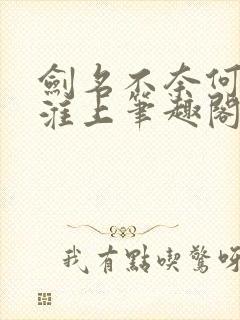 劍名不奈何
淮上筆趣閣
我有點喫驚呀